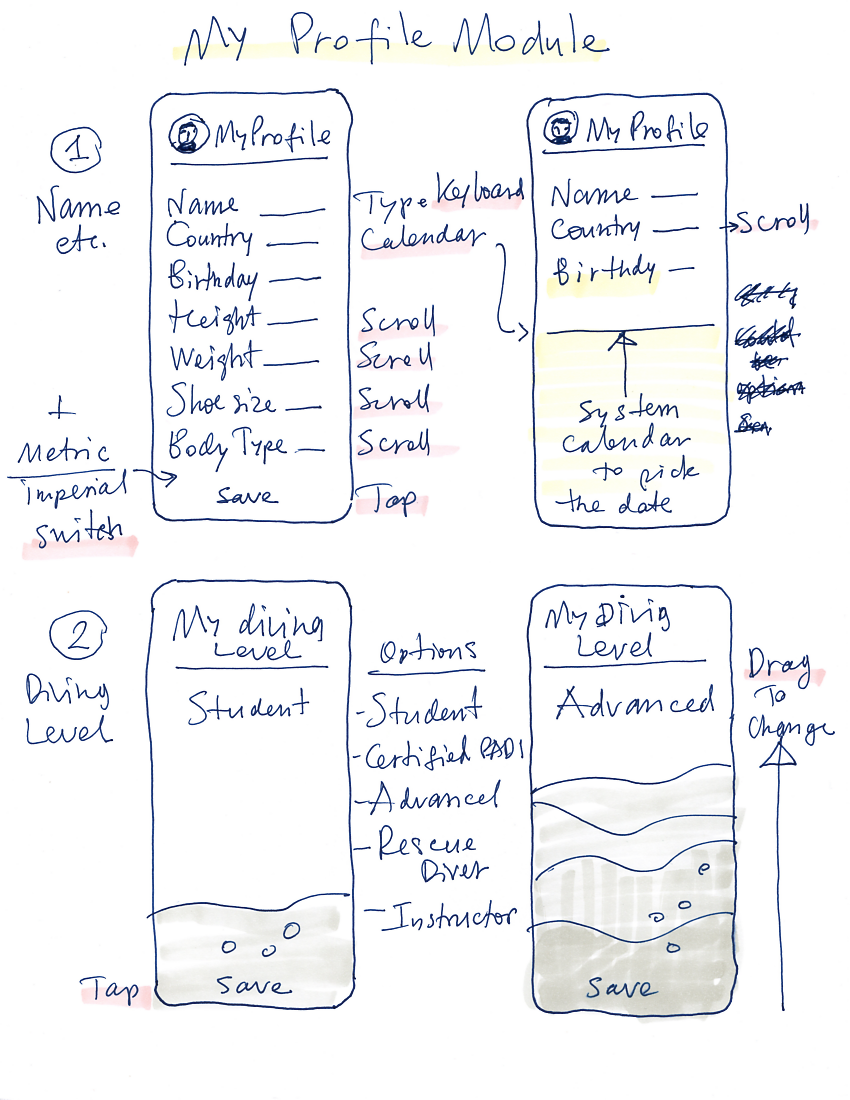 My Profile Module
1
Name
etc.
+
Metric
imperial
switch
My Profile
Name
Country
Birthday
Height
Weight
Shoe size
Body Type
save
Type Keyboard
Calendar
Scroll
Scroll
Scroll
Scroll
Tap
My Profile
Name
Country
Birthdy
System
calendar
to pick
the date
Scroll
2
Diving
Level
Tap
My diving
Level
Student
Save
Options
-Student
-Certified PADI
-Advanced
-Rescue
Diver
-Instructor
My Divig
Level
Advanced
Save
Drag
To
Change